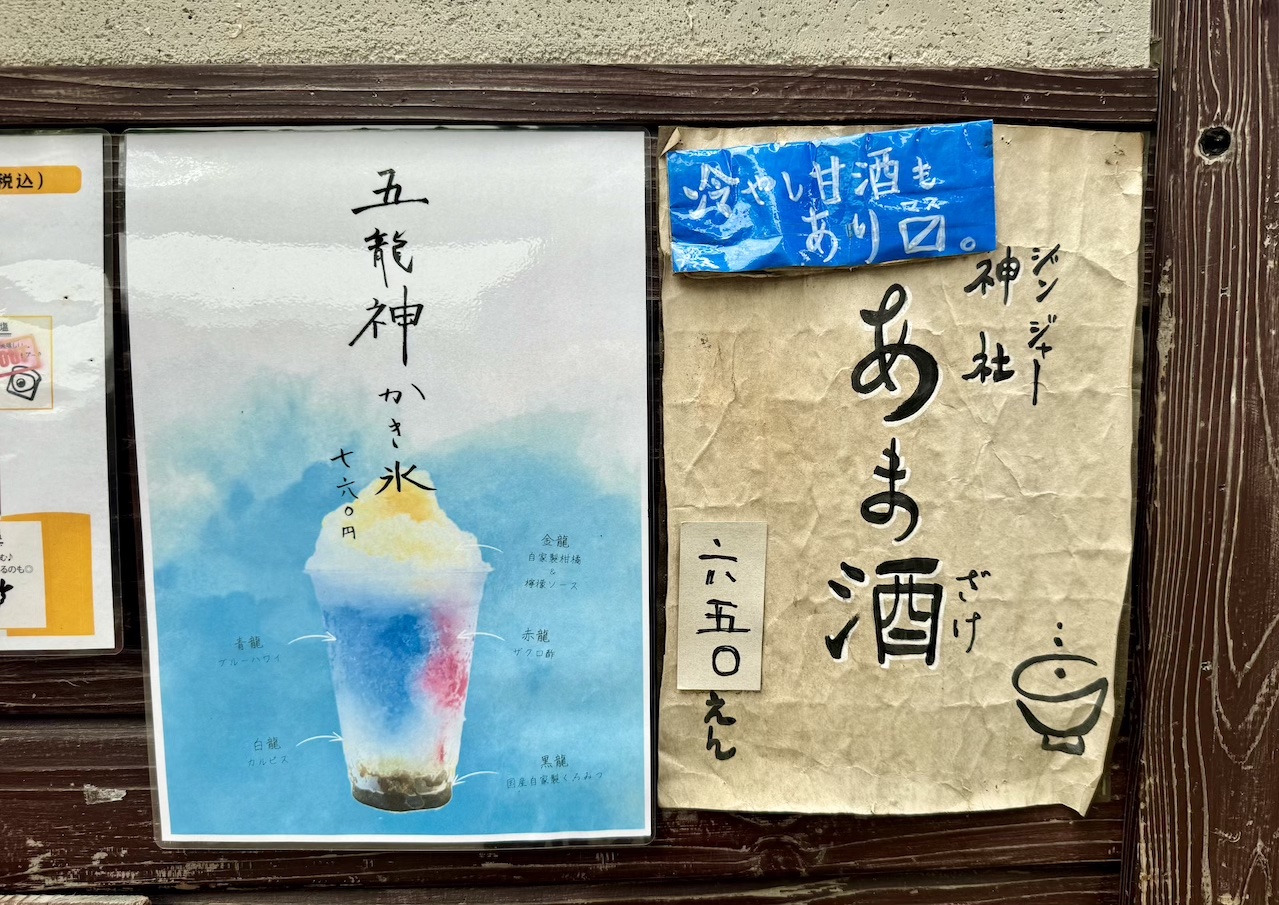 税込)
塩
五龍神かき氷
七六〇円
金龍
自家製柑橘
&
檸檬ソース
青龍
ブルーハワイ
赤龍
ザクロ酢
白龍
カルピス
黒龍
国産自家製くろみつ
冷やし甘酒も
あり〼。
マス
ジンジャー
神社
あま酒
ざけ
六五〇えん